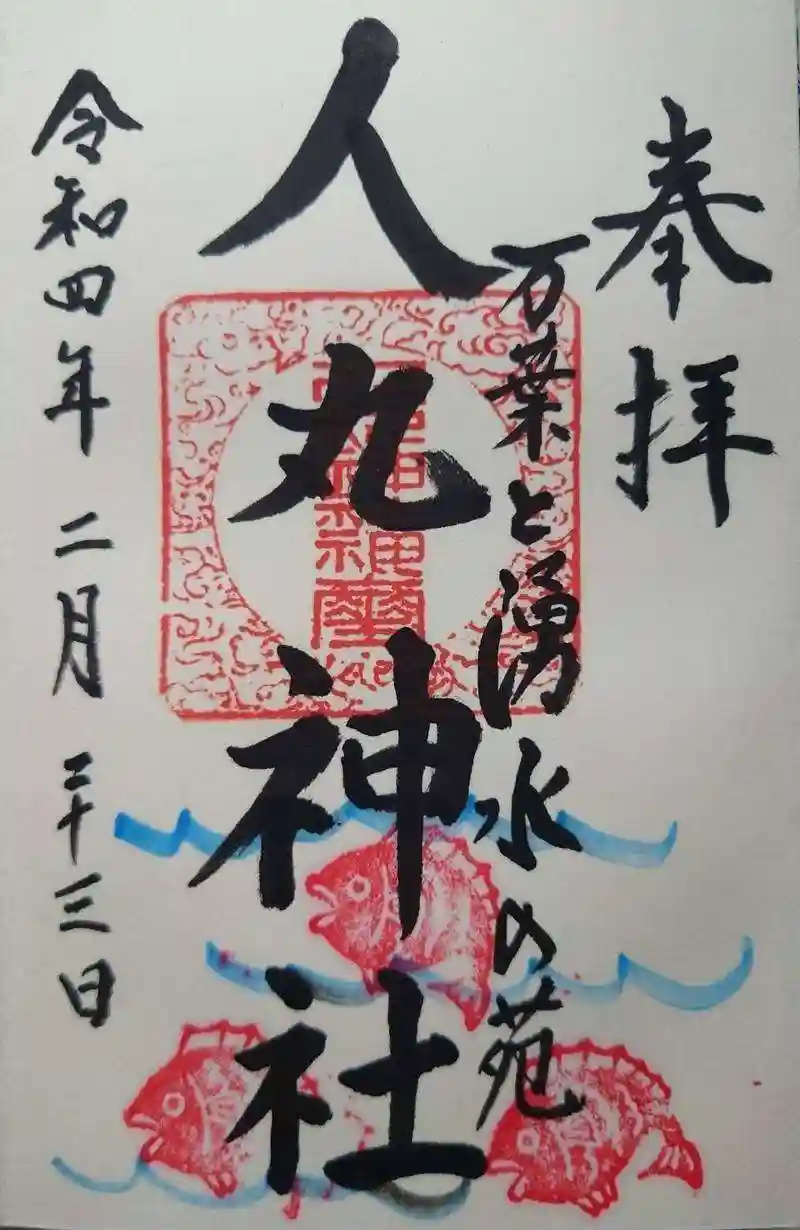 奉拝
万葉と湧水の苑
人丸神社
令和四年 二月 二十三日